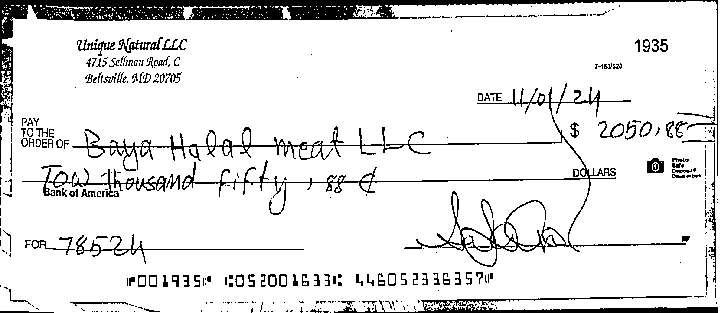 Unique Natural LLC
4715 Sellman Road, C
Beltsville, MD 20705
1935
7-163/520
DATE 11/01/24
PAY
TO THE
ORDER OF Baya Halal meat LLC $ 2050.88
Tow Thousand fifty, 88 ¢ DOLLARS
Photo
Safe
Deposit
Bank of America
FOR 78524
⑈001935⑈ ⑆052001633⑆ 446052336357⑈